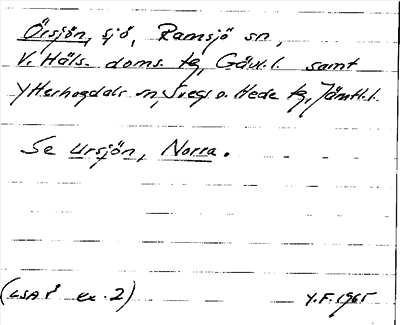 Örsjön, sjö, Ramsjö sn,
V. Häls. doms. tg, Gävl. l. samt
Ytterhogdals sn, Svegs o. Hede tg, Jämtl. l.
Se Ursjön, Norra.
(LSA ex. 2) Y.F. 1965